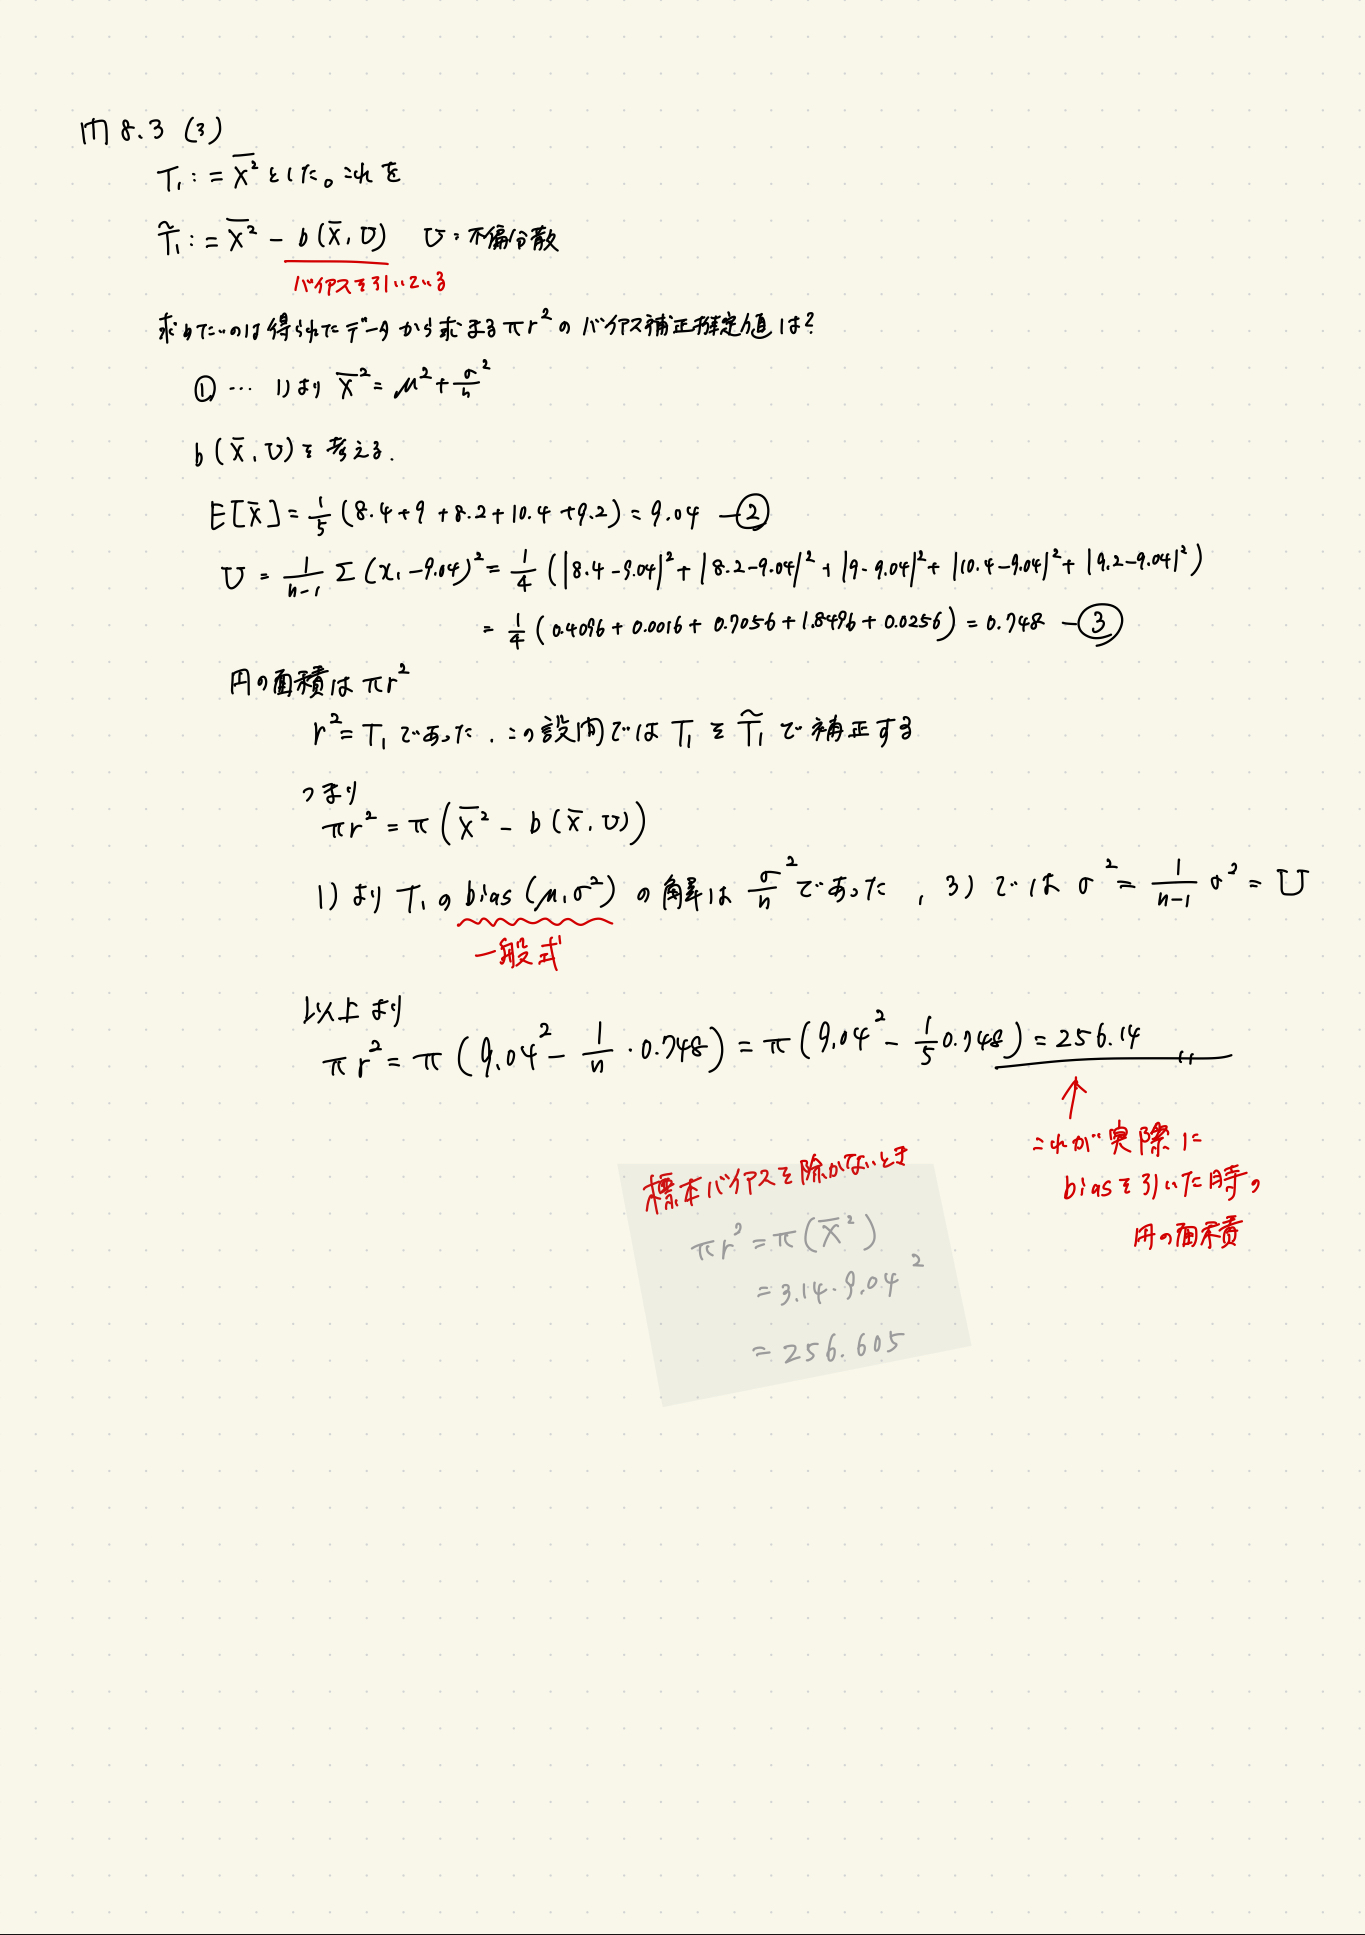 問 8.3 (3)
T₁ := X̄² とした。これを
T̃₁ := X̄² − b(X̄, U)　U:不偏分散
バイアスを引いている
求めたいのは得られたデータから求まる πr² の バイアス補正推定値は?
① … 1)より X̄² = μ² + σ²/n
b(X̄, U) を考える.
E[X̄] = 1/5 (8.4+9+8.2+10.4+9.2) = 9.04 —②
U = 1/(n-1) Σ(xᵢ−9.04)² = 1/4 (|8.4−9.04|² + |8.2−9.04|² + |9−9.04|² + |10.4−9.04|² + |9.2−9.04|²)
= 1/4 (0.4096 + 0.0016 + 0.7056 + 1.8496 + 0.0256) = 0.748 —③
円の面積は πr²
r² = T₁ であった. この設問では T₁ を T̃₁ で補正する
つまり
πr² = π(X̄² − b(X̄, U))
1) より T₁ の bias(μ, σ²) の解は σ²/n であった , 3) では σ² = 1/(n-1) σ² = U
一般式
以上より
πr² = π(9.04² − 1/n · 0.748) = π(9.04² − 1/5 0.748) = 256.14 〃
これが実際に
biasを引いた時の
円の面積
標本バイアスを除かないとき
πr² = π(X̄²)
= 3.14·9.04²
= 256.605